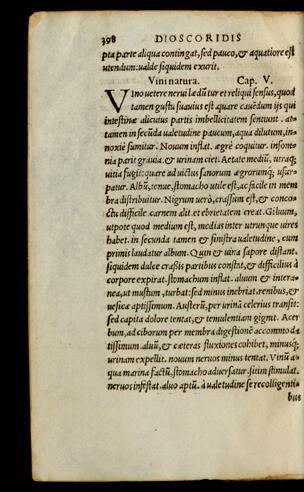 398 DIOSCORIDIS
pta parte aliqua contingat, sed pauco, & aquatiore est
utendum: ualde siquidem exurit.
Vini natura. Cap. V.
Vino uetere nerui lædūtur et reliqui sensus, quod
tamen gustu suauius est. quare cauēdum ijs qui
intestinæ alicuius partis imbellicitatem sentiunt. at-
tamen in secūda ualetudine paucum, aqua dilutum, in-
noxiè sumitur. Nouum inflat. ægrè coquitur. insom-
nia parit grauia. & urinam ciet. Aetate mediū, utraq;
uitia fugit: quare ad uictus sanorum ægrorumq; usur-
patur. Albū, tenue, stomacho utile est, ac facile in mem
bra distribuitur. Nigrum uerò, crassum est, & conco-
ctu difficile. carnem alit. et ebrietatem creat. Giluum,
utpote quod medium est, medias inter utrunque uires
habet. in secunda tamen & sinistra ualetudine, cum
primis laudatur album. Quin & uina sapore distant.
siquidem dulce craßis partibus constat, & difficilius à
corpore expirat. stomachum inflat. aluum & intera-
nea, ut mustum, turbat: sed minus inebriat. renibus, &
uesicæ aptissimum. Austerū, per urinā celerius transit:
sed capita dolore tentat, & temulentiam gignit. Acer
bum, ad ciborum per membra digestionē accommoda
tissimum. aluū, & cæteras fluxiones cohibet, minusq;
urinam expellit. nouum neruos minus tentat. Vinū a-
qua marina factū, stomacho aduersatur. sitim stimulat.
neruos infestat. aluo aptū. à ualetudine se recolligenti-
bus